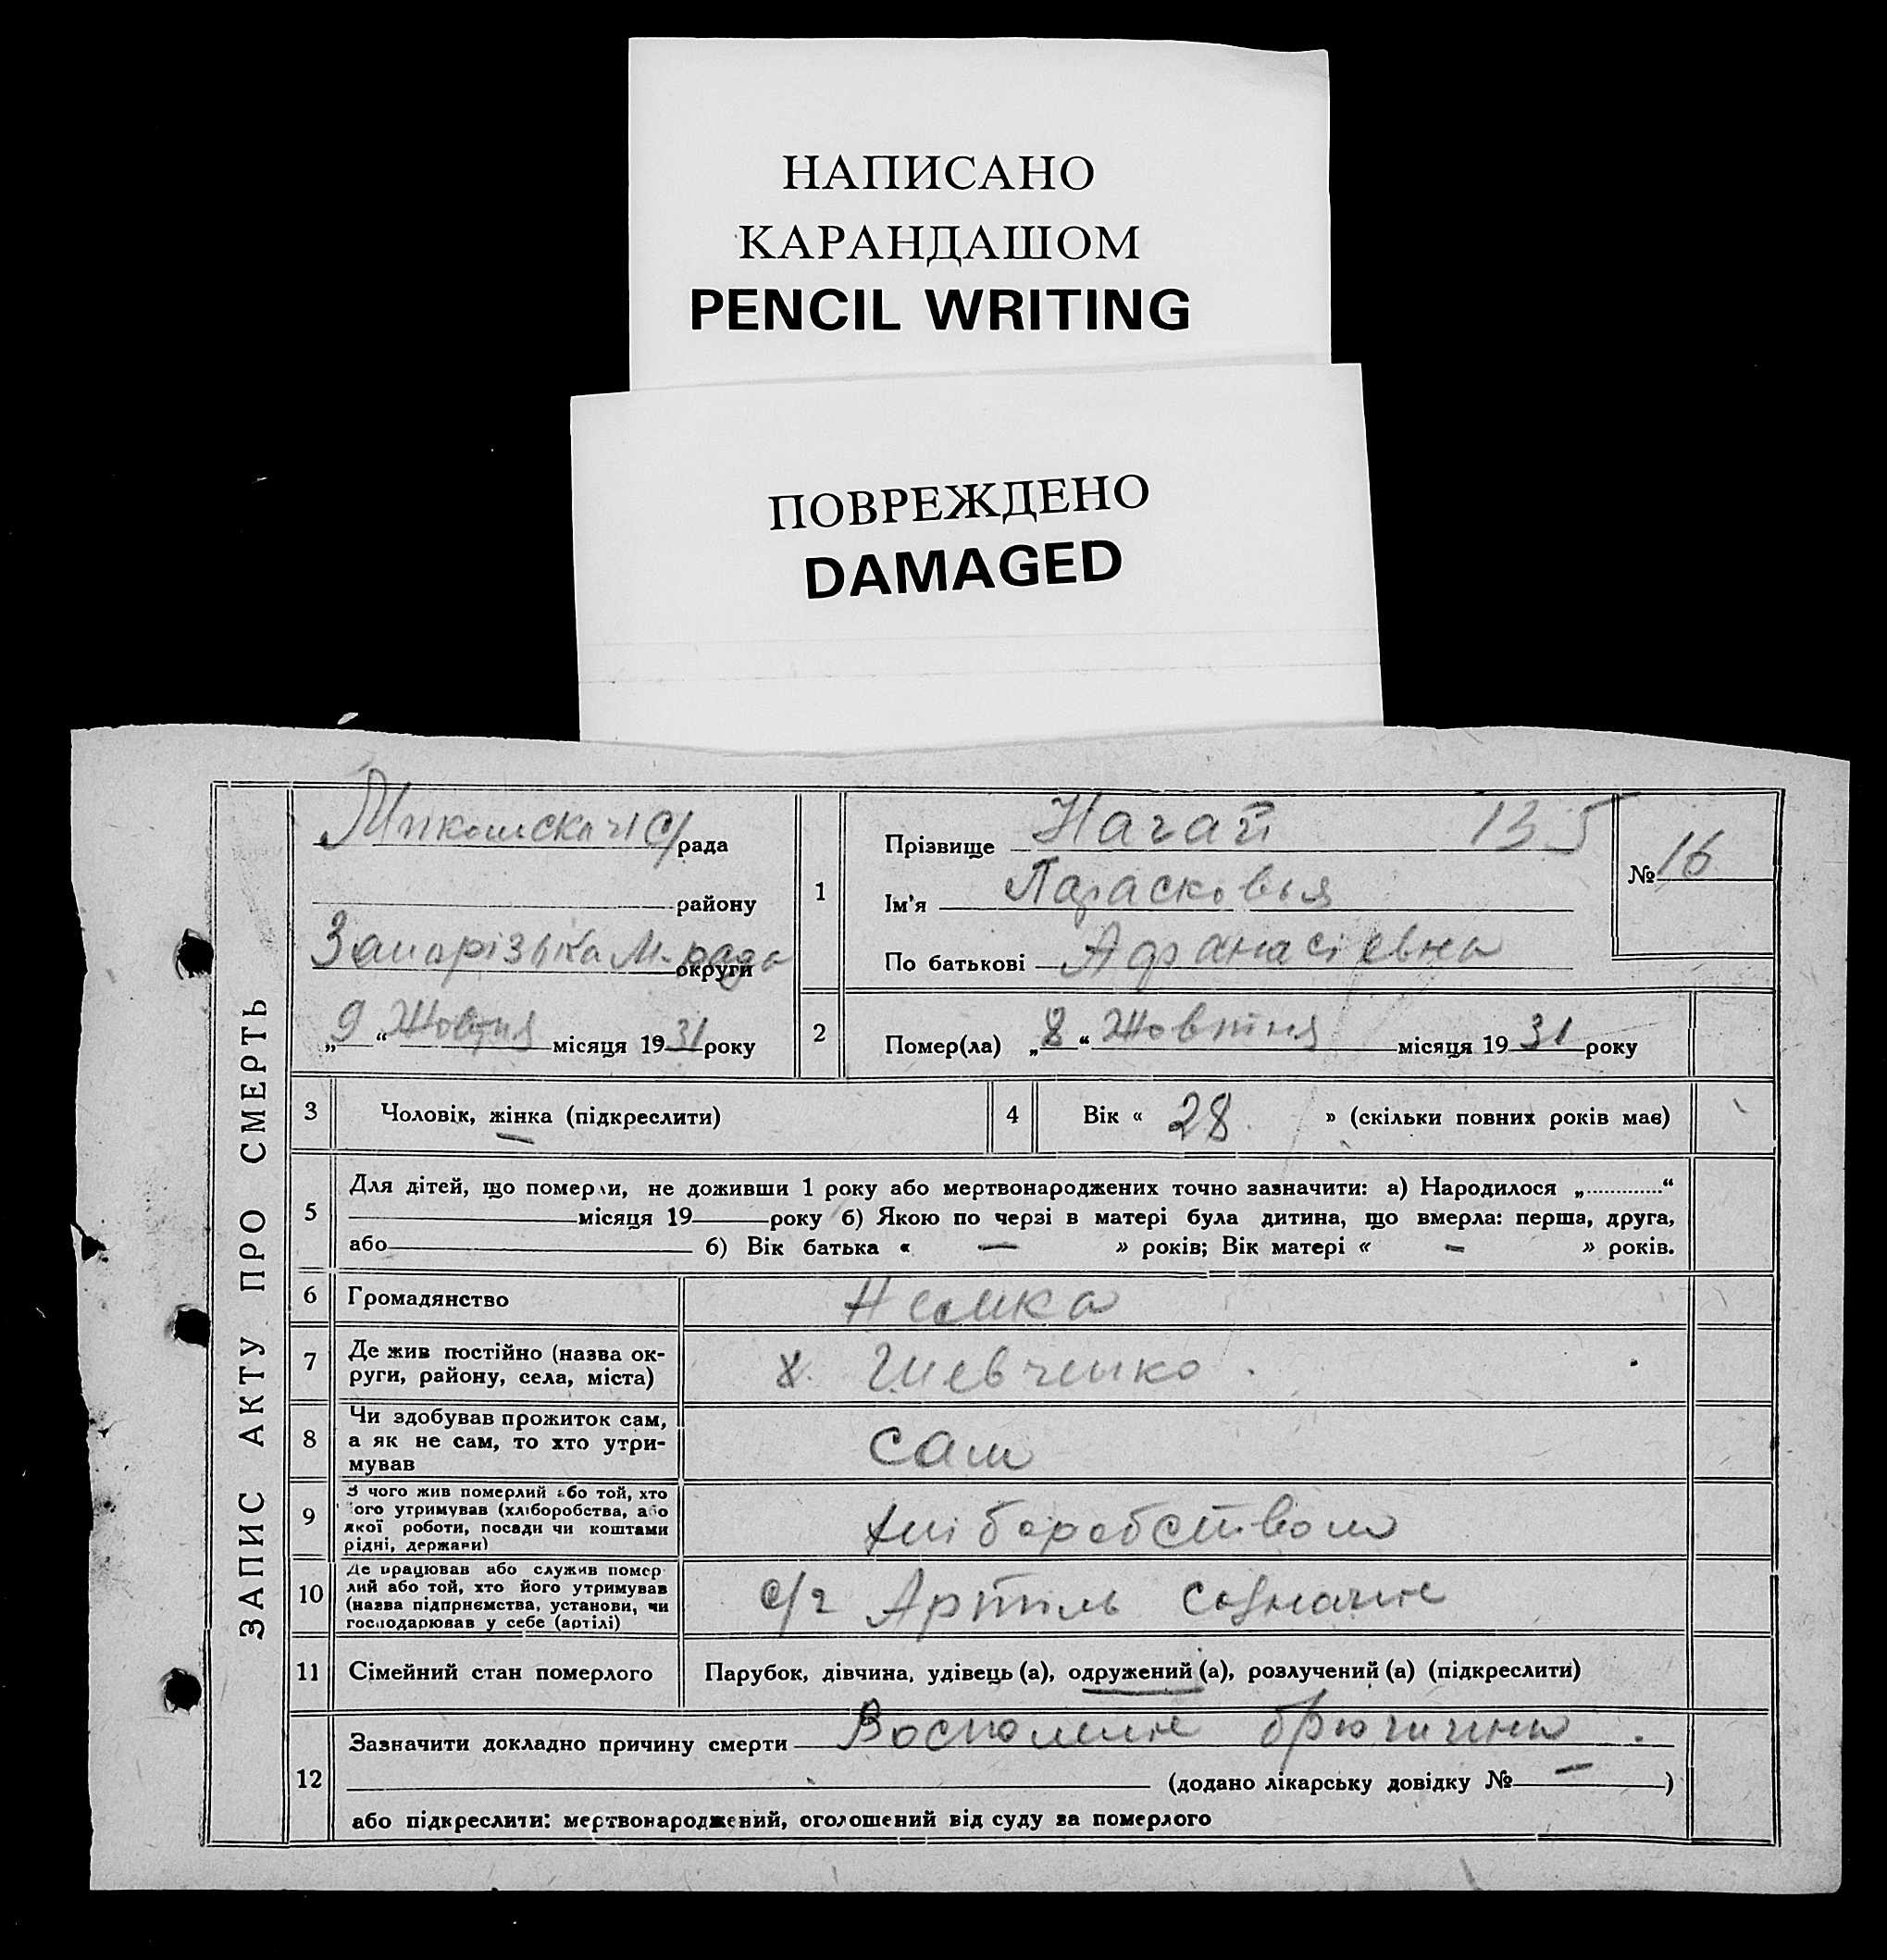 НАПИСАНО
КАРАНДАШОМ
PENCIL WRITING
ПОВРЕЖДЕНО
DAMAGED
ЗАПИС АКТУ ПРО СМЕРТЬ
С/рада
району
Запорізька М. рада округи
„9“ Жовтня місяця 1931 року
1
Прізвище Нагай 135
Ім'я Парасковья
По батькові Афанасіевна
№ 16
2
Помер(ла) „8“ Жовтня місяця 1931 року
3 Чоловік, жінка (підкреслити)
4 Вік « 28 » (скільки повних років має)
5 Для дітей, що померли, не доживши 1 року або мертвонароджених точно зазначити: а) Народилося „............“
місяця 19 року б) Якою по черзі в матері була дитина, що вмерла: перша, друга,
або б) Вік батька « — » років; Вік матері « — » років.
6 Громадянство
7 Де жив постійно (назва ок-
руги, району, села, міста)
х. Шевченко
8 Чи здобував прожиток сам,
а як не сам, то хто утри-
мував
сам
9 З чого жив померлий або той, хто
його утримував (хліборобства, або
якої роботи, посади чи коштами
рідні, держави)
хліборобством
10 Де працював або служив помер
лий або той, хто його утримував
(назва підприємства, установи, чи
господарював у себе (артілі)
с/г Артіль
11 Сімейний стан померлого
Парубок, дівчина, удівець (а), одружений (а), розлучений (а) (підкреслити)
12 Зазначити докладно причину смерти
(додано лікарську довідку № — )
або підкреслити: мертвонароджений, оголошений від суду за померлого